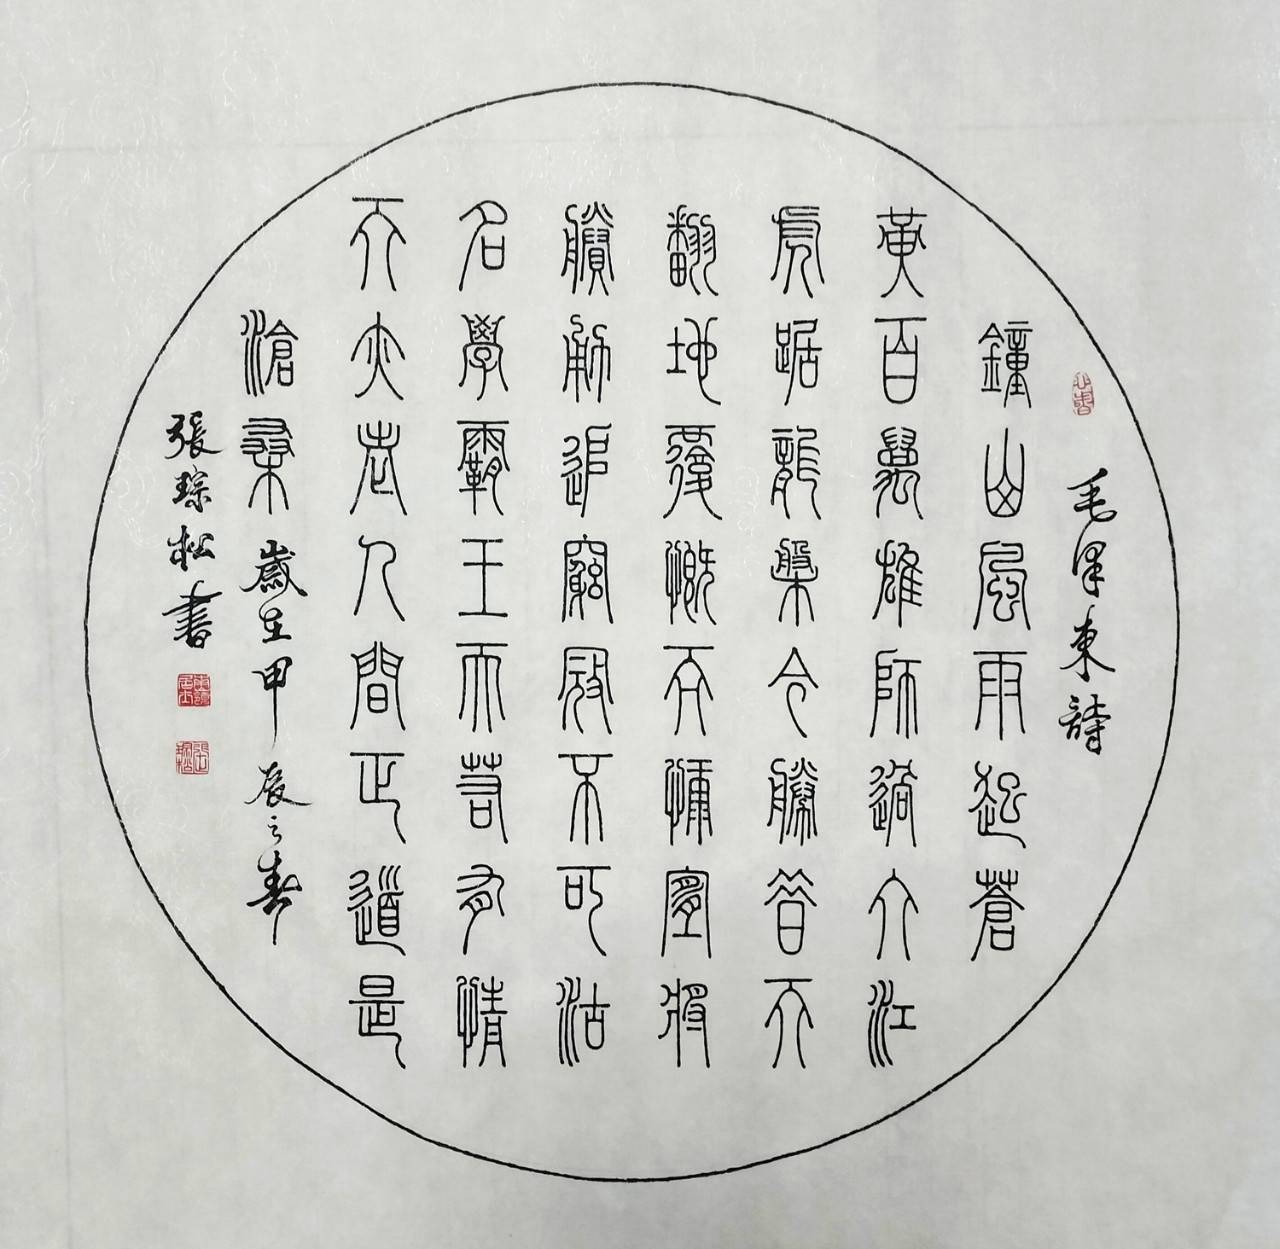 毛澤東詩
鐘山風雨起蒼
黃百萬雄師過大江
虎踞龍盤今勝昔天
翻地覆慨而慷宜將
賸勇追窮寇不可沽
名學霸王天若有情
天亦老人間正道是
滄桑歲在甲辰之春
張琮松書